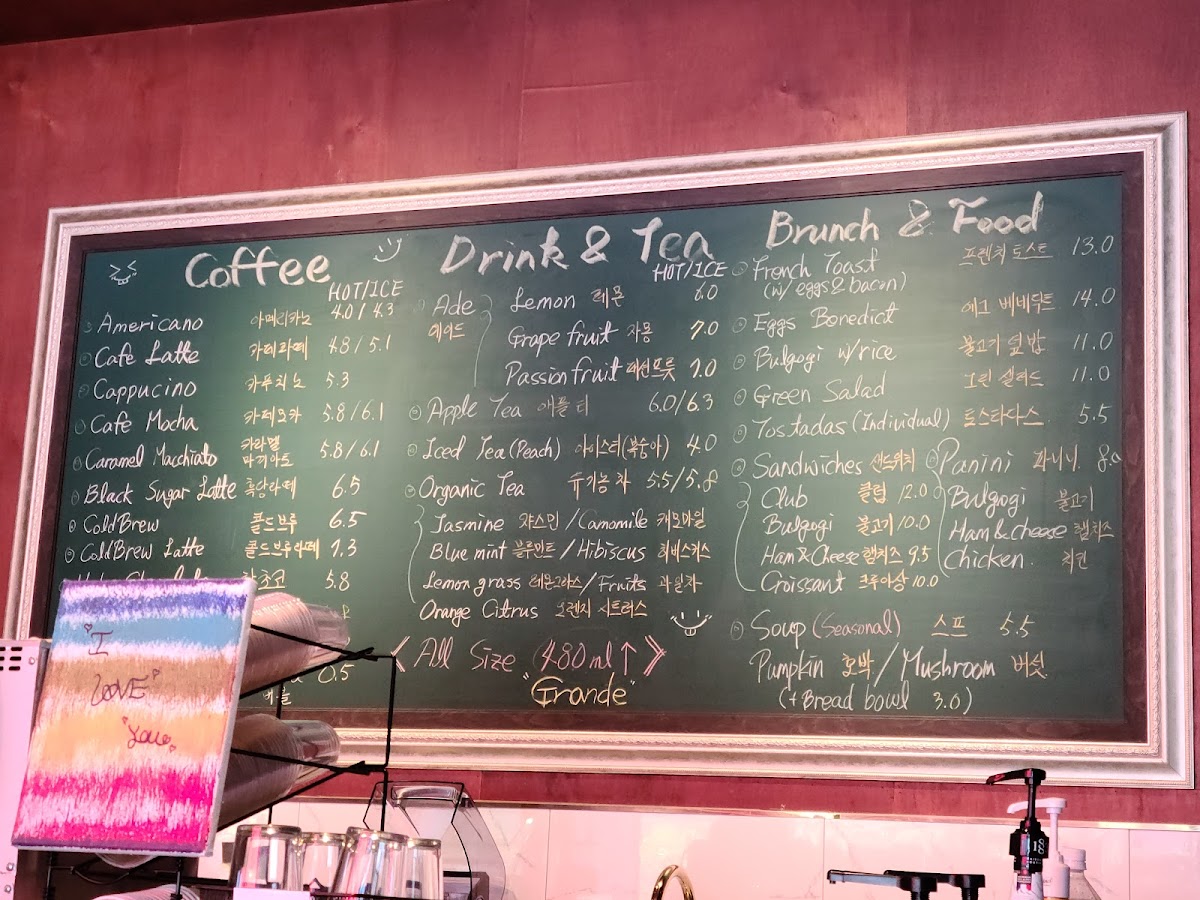 Coffee
HOT/ICE
Americano 아메리카노 4.0 / 4.3
Café Latte 카페라떼 4.8 / 5.1
Cappucino 카푸치노 5.3
Café Mocha 카페모카 5.8 / 6.1
Caramel Macchiato 카라멜 마끼아또 5.8 / 6.1
Black Sugar Latte 흑당라떼 6.5
Cold Brew 콜드브루 6.5
Cold Brew Latte 콜드브루라떼 7.3
5.8
0.5
I
LOVE
You
Drink & Tea
HOT/ICE
Ade 에이드
Lemon 레몬 6.0
Grape fruit 자몽 7.0
Passion fruit 패션프룻 7.0
Apple Tea 애플티 6.0/6.3
Iced Tea (Peach) 아이스티(복숭아) 4.0
Organic Tea 유기농 차 5.5/5.8
Jasmine 쟈스민 / Camomile 캐모마일
Blue mint 블루민트 / Hibiscus 히비스커스
Lemon grass 레몬그라스 / Fruits 과일차
Orange Citrus 오렌지 시트러스
《 All Size (480ml↑) 》
"Grande"
Brunch & Food
French Toast 프렌치 토스트 13.0
(w/ eggs & bacon)
Eggs Benedict 에그 베네딕트 14.0
Bulgogi w/rice 불고기 덮밥 11.0
Green Salad 그린 샐러드 11.0
Tostadas (Individual) 토스타다스 5.5
Sandwiches 샌드위치
Club 클럽 12.0
Bulgogi 불고기 10.0
Ham & Cheese 햄치즈 9.5
Croissant 크루아상 10.0
Panini 파니니 8.0
Bulgogi 불고기
Ham & cheese 햄치즈
Chicken 치킨
Soup (Seasonal) 스프 5.5
Pumpkin 호박 / Mushroom 버섯
(+ Bread bowl 3.0)